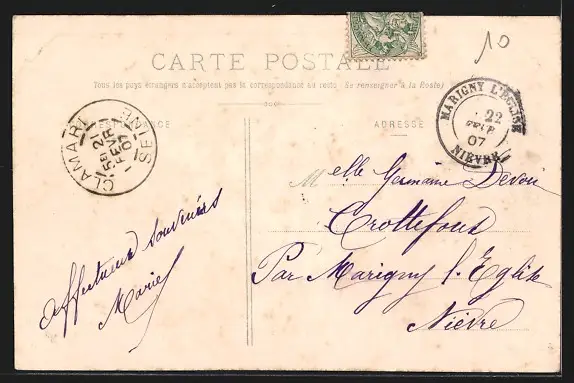 CARTE POSTALE
Tous les pays étrangers n'acceptent pas la correspondance au recto (Se renseigner à la Poste)
CORRESPONDANCE
ADRESSE
10
CLAMART
21
FEVR
07
SEINE
MARIGNY L'EGLISE
22
FEVR
07
NIEVRE
Melle Germaine Devoir
Crottefous
Par Marigny l'Eglise
Nièvre
Affectueux souvenirs
Marie